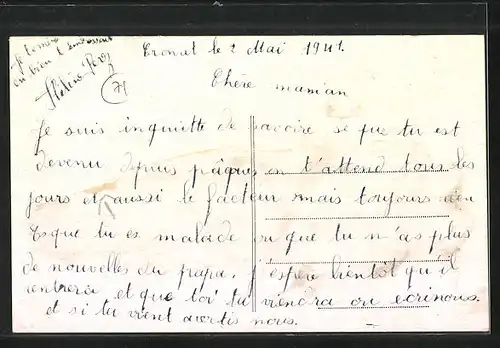 Je termine
en bien t'embrassant
71
Cronat le 2 Mai 1941.
Chère maman
Je suis inquiitte de savoire se que tu est
devenu depuis pâques en t'attend tous les
jours et aussi le facteur mais toujours rien
Esque tu es malade ou que tu n'as plus
de nouvelles du papa, j'espère bientôt qu'il
rentrera et que toi tu viendra ou ecrinous.
et si tu vient avertis nous.